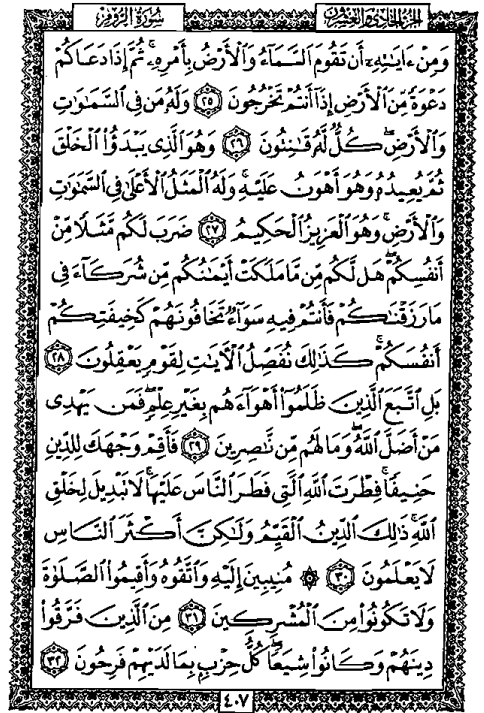 الجزء الحادي والعشرون سورة الروم
وَمِنْ ءَايَٰتِهِۦٓ أَن تَقُومَ ٱلسَّمَآءُ وَٱلْأَرْضُ بِأَمْرِهِۦ ۚ ثُمَّ إِذَا دَعَاكُمْ
دَعْوَةً مِّنَ ٱلْأَرْضِ إِذَآ أَنتُمْ تَخْرُجُونَ ٢٥ وَلَهُۥ مَن فِى ٱلسَّمَٰوَٰتِ
وَٱلْأَرْضِ ۖ كُلٌّ لَّهُۥ قَٰنِتُونَ ٢٦ وَهُوَ ٱلَّذِى يَبْدَؤُا۟ ٱلْخَلْقَ
ثُمَّ يُعِيدُهُۥ وَهُوَ أَهْوَنُ عَلَيْهِ ۚ وَلَهُ ٱلْمَثَلُ ٱلْأَعْلَىٰ فِى ٱلسَّمَٰوَٰتِ
وَٱلْأَرْضِ ۚ وَهُوَ ٱلْعَزِيزُ ٱلْحَكِيمُ ٢٧ ضَرَبَ لَكُم مَّثَلًا مِّنْ
أَنفُسِكُمْ ۖ هَل لَّكُم مِّن مَّا مَلَكَتْ أَيْمَٰنُكُم مِّن شُرَكَآءَ فِى
مَا رَزَقْنَٰكُمْ فَأَنتُمْ فِيهِ سَوَآءٌ تَخَافُونَهُمْ كَخِيفَتِكُمْ
أَنفُسَكُمْ ۚ كَذَٰلِكَ نُفَصِّلُ ٱلْءَايَٰتِ لِقَوْمٍ يَعْقِلُونَ ٢٨
بَلِ ٱتَّبَعَ ٱلَّذِينَ ظَلَمُوٓا۟ أَهْوَآءَهُم بِغَيْرِ عِلْمٍ ۖ فَمَن يَهْدِى
مَنْ أَضَلَّ ٱللَّهُ ۖ وَمَا لَهُم مِّن نَّٰصِرِينَ ٢٩ فَأَقِمْ وَجْهَكَ لِلدِّينِ
حَنِيفًا ۚ فِطْرَتَ ٱللَّهِ ٱلَّتِى فَطَرَ ٱلنَّاسَ عَلَيْهَا ۚ لَا تَبْدِيلَ لِخَلْقِ
ٱللَّهِ ۚ ذَٰلِكَ ٱلدِّينُ ٱلْقَيِّمُ وَلَٰكِنَّ أَكْثَرَ ٱلنَّاسِ
لَا يَعْلَمُونَ ٣٠ ۞ مُنِيبِينَ إِلَيْهِ وَٱتَّقُوهُ وَأَقِيمُوا۟ ٱلصَّلَوٰةَ
وَلَا تَكُونُوا۟ مِنَ ٱلْمُشْرِكِينَ ٣١ مِنَ ٱلَّذِينَ فَرَّقُوا۟
دِينَهُمْ وَكَانُوا۟ شِيَعًا ۖ كُلُّ حِزْبٍۭ بِمَا لَدَيْهِمْ فَرِحُونَ ٣٢
٤٠٧